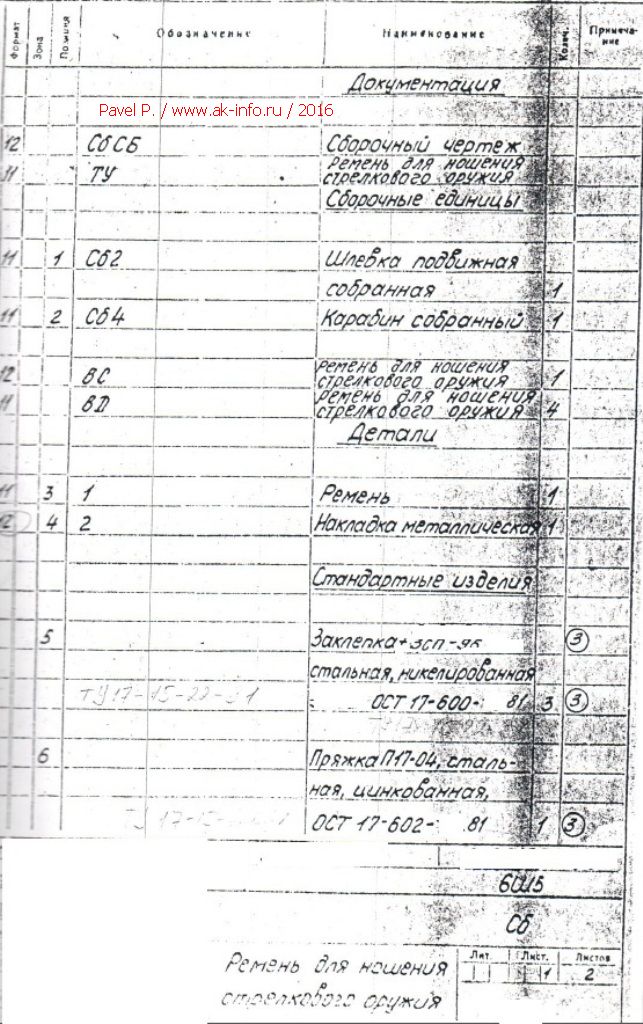 Формат Зона Позиция Обозначение Наименование Колич. Примеча-
ние
Документация
Pavel P. / www.ak-info.ru / 2016
12 Сб СБ Сборочный чертеж
11 ТУ Ремень для ношения
стрелкового оружия
Сборочные единицы
11 1 Сб2 Шлевка подвижная
собранная 1
11 2 Сб4 Карабин собранный 1
12 ВС Ремень для ношения
стрелкового оружия 1
11 ВД Ремень для ношения
стрелкового оружия 4
Детали
11 3 1 Ремень 1
12 4 2 Накладка металлическая 1
Стандартные изделия
5 Заклепка 3
стальная, никелированная
ОСТ 17-600- 81 3 3
6 Пряжка П17-04, сталь-
ная, цинкованная,
ОСТ 17-602- 81 1 3
6Ш5
Сб
Ремень для ношения
стрелкового оружия
Лит. Лист. Листов
1 2